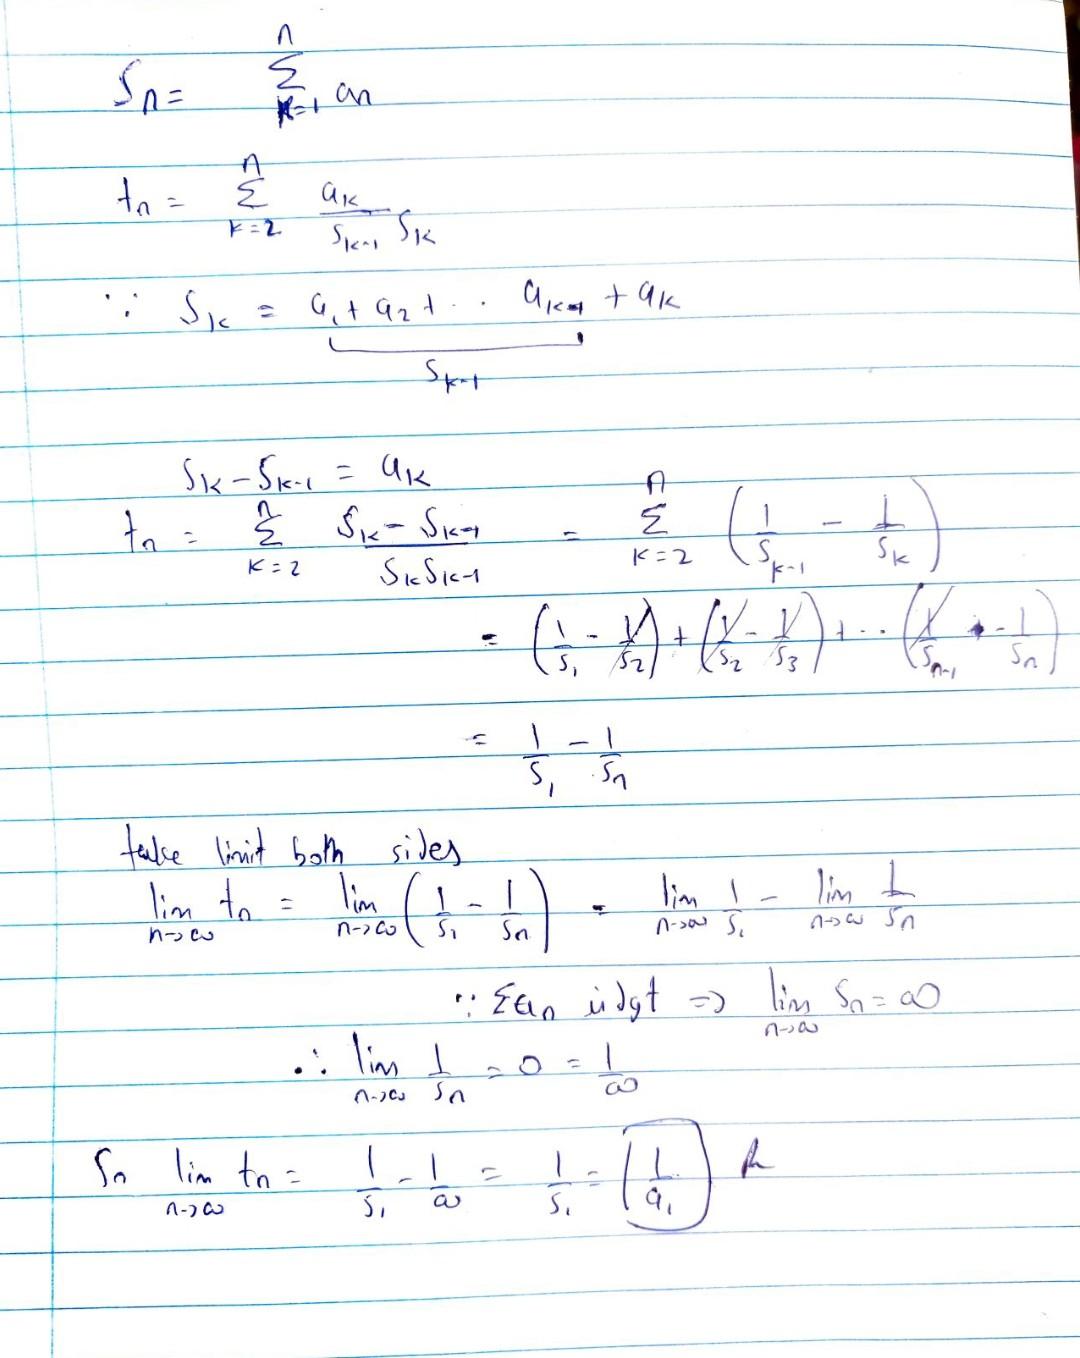 Sn = n Σ k=1 an
tn = n Σ k=2 ak / Sk-1 Sk
∵ Sk = a1 + a2 + .. ak-1 + ak
Sk-1
Sk - Sk-1 = ak
tn = n Σ k=2 Sk - Sk-1 / Sk Sk-1 = n Σ k=2 (1/Sk-1 - 1/Sk)
= (1/S1 - 1/S2) + (1/S2 - 1/S3) + .. (1/Sn-1 - 1/Sn)
= 1/S1 - 1/Sn
take limit both sides
lim n→∞ tn = lim n→∞ (1/S1 - 1/Sn) = lim n→∞ 1/S1 - lim n→∞ 1/Sn
∵ Σan is dgt ⇒ lim n→∞ Sn = ∞
∴ lim n→∞ 1/Sn = 0 = 1/∞
So lim n→∞ tn = 1/S1 - 1/∞ = 1/S1 = 1/a1